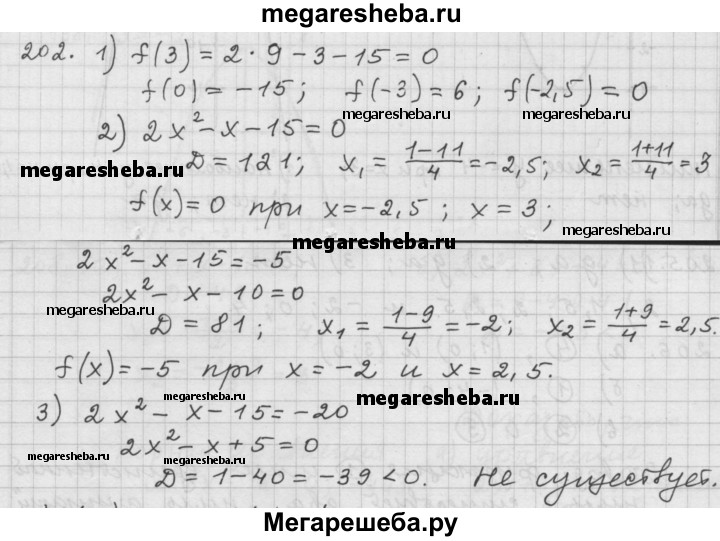 megaresheba.ru
202. 1) f(3) = 2 · 9 − 3 − 15 = 0
f(0) = −15; f(−3) = 6; f(−2,5) = 0
megaresheba.ru megaresheba.ru
2) 2x² − x − 15 = 0
megaresheba.ru D = 121; x₁ = (1−11)/4 = −2,5; x₂ = (1+11)/4 = 3
f(x) = 0 при x = −2,5; x = 3;
megaresheba.ru
megaresheba.ru
2x² − x − 15 = −5
2x² − x − 10 = 0
megaresheba.ru megaresheba.ru
D = 81; x₁ = (1−9)/4 = −2; x₂ = (1+9)/4 = 2,5.
f(x) = −5 при x = −2 и x = 2,5.
megaresheba.ru megaresheba.ru
3) 2x² − x − 15 = −20
megaresheba.ru
2x² − x + 5 = 0
megaresheba.ru megaresheba.ru
D = 1 − 40 = −39 < 0. Не существует.
megaresheba.ru
Мегарешеба.ру